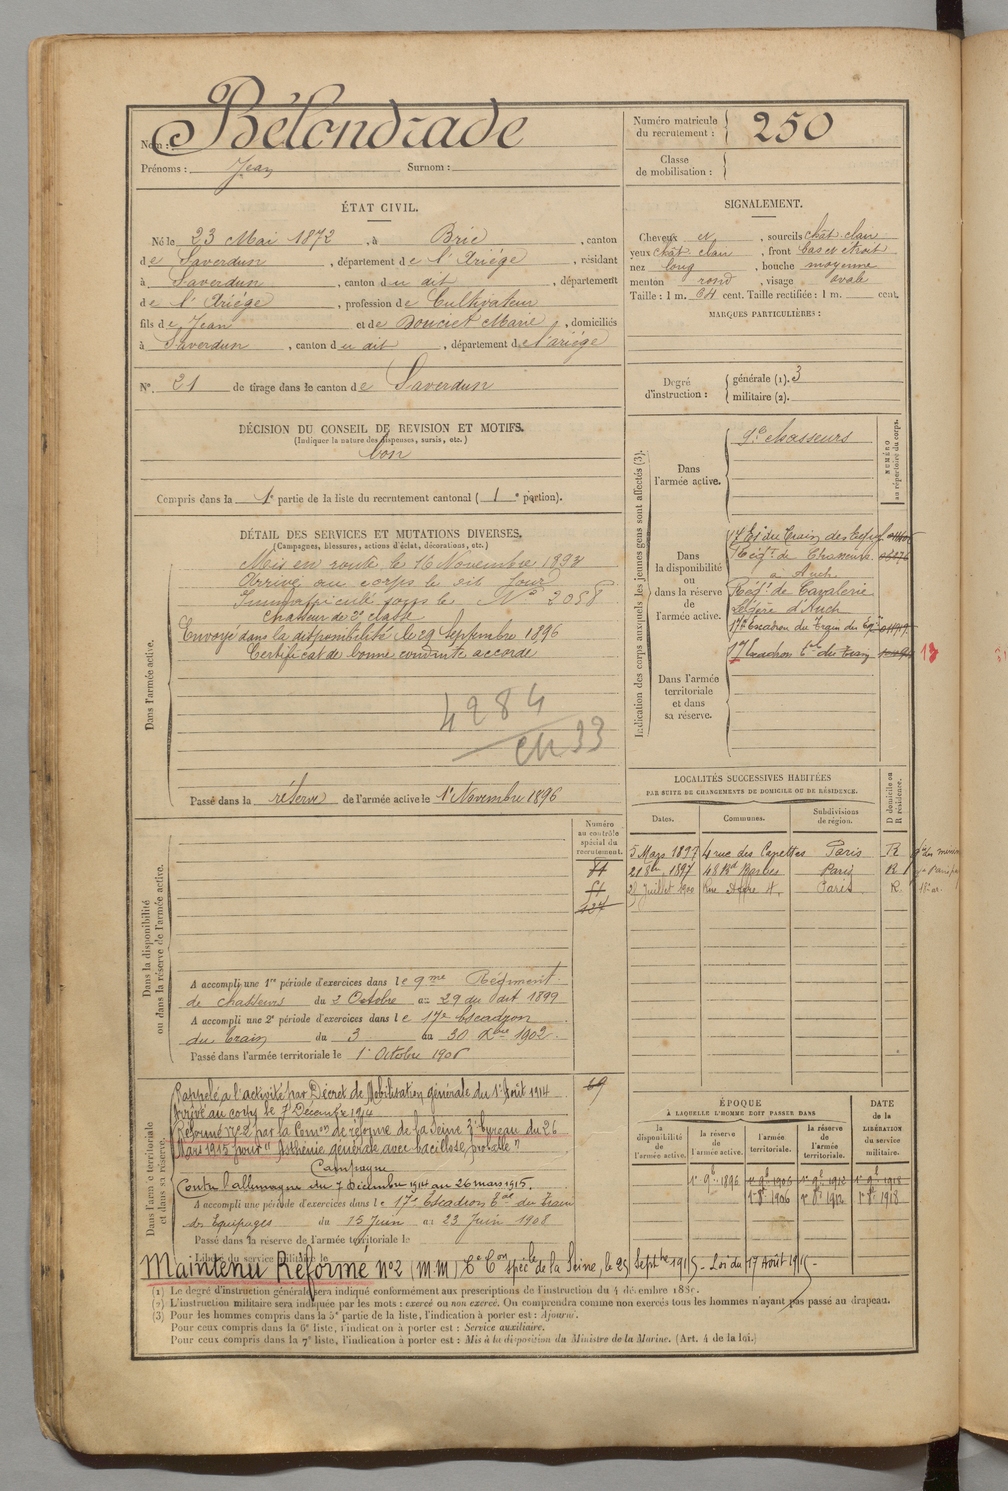 Nom : Bélondrade
Prénoms : Jean Surnom :
Numéro matricule du recrutement : 250
Classe de mobilisation :
ÉTAT CIVIL.
Né le 23 Mai 1872, à Brie, canton
de Saverdun, département de l'Ariége, résidant
à Saverdun, canton du dit, département
de l'Ariége, profession de Cultivateur
fils de Jean et de Douciet Marie, domiciliés
à Saverdun, canton du dit, département de l'ariége
N° 21 de tirage dans le canton de Saverdun
SIGNALEMENT.
Cheveux et, sourcils chât. clair
yeux chât clair, front bas et étroit
nez long, bouche moyenne
menton rond, visage ovale
Taille : 1 m. 64 cent. Taille rectifiée : 1 m. cent.
MARQUES PARTICULIÈRES :
Degré d'instruction : générale (1). 3
militaire (2).
DÉCISION DU CONSEIL DE REVISION ET MOTIFS.
(Indiquer la nature des dispenses, sursis, etc.)
bon
Compris dans la 1e partie de la liste du recrutement cantonal (1e portion).
DÉTAIL DES SERVICES ET MUTATIONS DIVERSES.
(Campagnes, blessures, actions d'éclat, décorations, etc.)
Dans l'armée active.
Mis en route le 16 Novembre 1893
Arrivé au corps le dit jour
Immatriculé sous le N° 2058
Chasseur de 2e classe
Envoyé dans la disponibilité le 29 Septembre 1896
Certificat de bonne conduite accordé
4284
en 33
Passé dans la réserve de l'armée active le 1er Novembre 1896
Indication des corps auxquels les jeunes gens sont affectés (3).
NUMÉRO au répertoire du corps.
Dans l'armée active.
9e chasseurs
Dans la disponibilité ou dans la réserve de l'armée active.
Régt de Chasseurs
à Auch
Régt de Cavalerie
Légère d'Auch
17e Escadron du Train des Eq.
17 Escadron tal du Train
13
Dans l'armée territoriale et dans sa réserve.
LOCALITÉS SUCCESSIVES HABITÉES
PAR SUITE DE CHANGEMENTS DE DOMICILE OU DE RÉSIDENCE.
Dates. Communes. Subdivisions de région. D domicile ou R résidence.
5 Mars 1897 4 rue des Capettes Paris R
21 8bre 1897 48 Bd Barbès Paris R
Juillet 1900 Paris R
Numéro au contrôle spécial du recrutement.
Dans la disponibilité ou dans la réserve de l'armée active.
A accompli une 1re période d'exercices dans le 9me Régiment
de chasseurs du 2 Octobre au 29 du dit 1899
A accompli une 2e période d'exercices dans le 17e Escadron
du Train du 3 au 30 1902
Passé dans l'armée territoriale le 1er Octobre 1906
69
Dans l'armée territoriale et dans sa réserve.
Rappelé à l'activité par Décret de Mobilisation générale du 1er Août 1914
Arrivé au corps le 7 Décembre 1914
Réformé n° 2 par la Comon de réforme de la Seine 3e bureau du 26
Mars 1915 pour "Asthénie générale avec bacillose probable"
Campagne
Contre l'allemagne du 7 Décembre 1914 au 26 mars 1915.
A accompli une période d'exercices dans le 17e Escadron tal du Train
des Equipages du 15 Juin au 23 Juin 1908
Passé dans la réserve de l'armée territoriale le
Libéré du service militaire le
Maintenu Réformé n°2 (M.M) Ce Con spécle de la Seine, le 29 Septbre 1915 - Loi du 17 Août 1915 -
ÉPOQUE
À LAQUELLE L'HOMME DOIT PASSER DANS
la disponibilité de l'armée active. la réserve de l'armée active. l'armée territoriale. la réserve de l'armée territoriale.
DATE de la LIBÉRATION du service militaire.
1er 9b 1896 1er 9b 1906 1er 9b 1912 1er 9b 1918
1er 8b 1906 1er 8b 1912 1er 8b 1918
(1) Le degré d'instruction générale sera indiqué conformément aux prescriptions de l'instruction du 4 décembre 1889.
(2) L'instruction militaire sera indiquée par les mots : exercé ou non exercé. On comprendra comme non exercés tous les hommes n'ayant pas passé au drapeau.
(3) Pour les hommes compris dans la 5e partie de la liste, l'indication à porter est : Ajourné.
Pour ceux compris dans la 6e liste, l'indication à porter est : Service auxiliaire.
Pour ceux compris dans la 7e liste, l'indication à porter est : Mis à la disposition du Ministre de la Marine. (Art. 4 de la loi.)